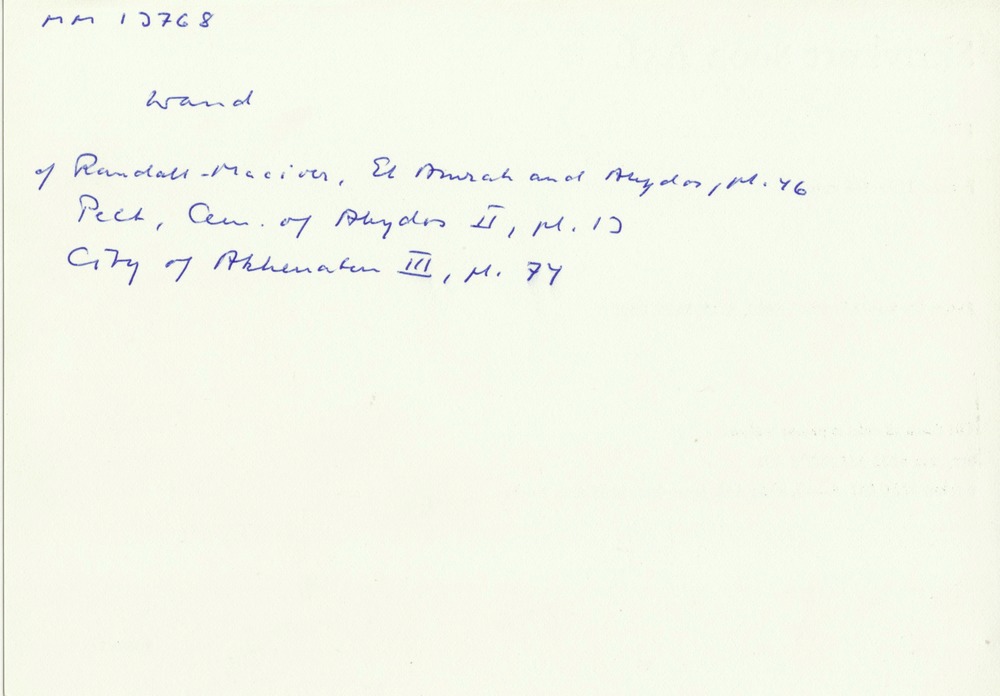 MM 13768
Wand
cf Randall-Maciver, El Amrah and Abydos, pl. 46
Peet, Cem. of Abydos II, pl. 13
City of Akhenaten III, pl. 74